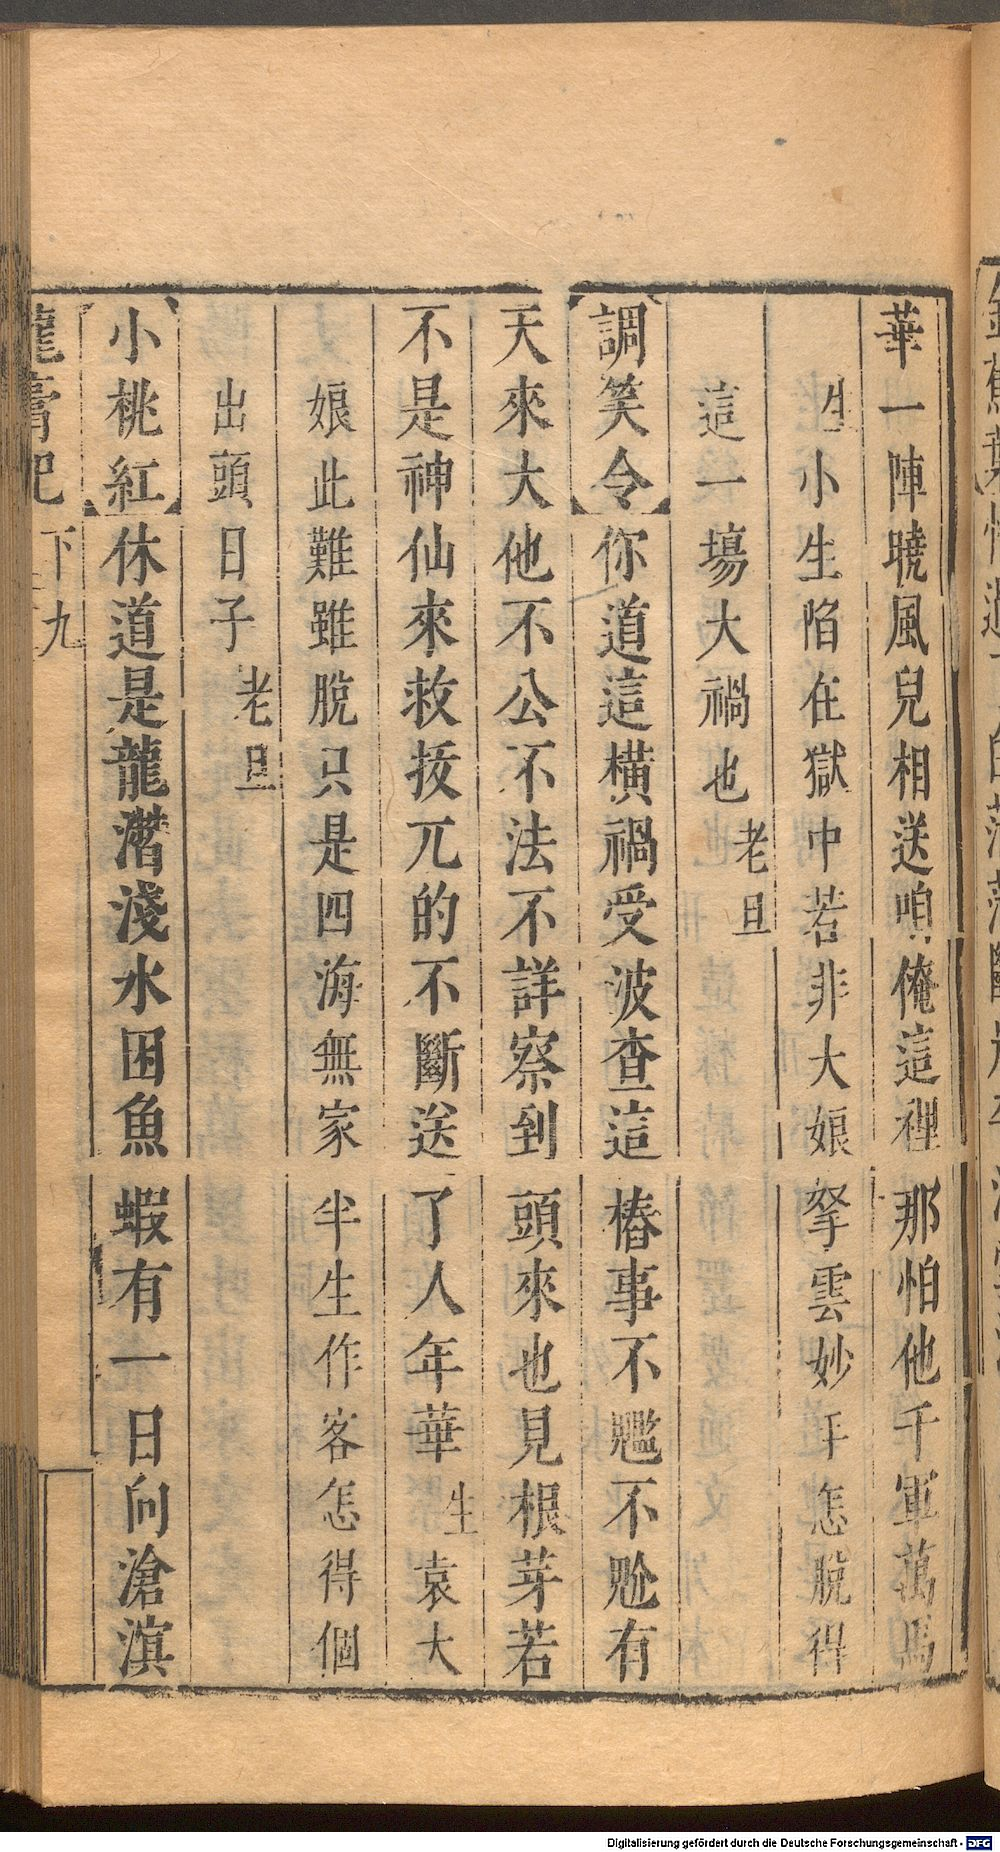 華一陣曉風兒相送咱俺這裡那怕他千軍萬馬
生小生陷在獄中若非大娘拏雲妙手怎脫得
這一場大禍也老旦
調笑令你道這橫禍受波查這樁事不尷不尬有
天來大他不公不法不詳察到頭來也見根芽若
不是神仙來救援兀的不斷送了人年華生袁大
娘此難雖脫只是四海無家半生作客怎得個
出頭日子老旦
小桃紅休道是龍潛淺水困魚蝦有一日向滄溟
龍膏記
下九
Digitalisierung gefördert durch die Deutsche Forschungsgemeinschaft - DFG